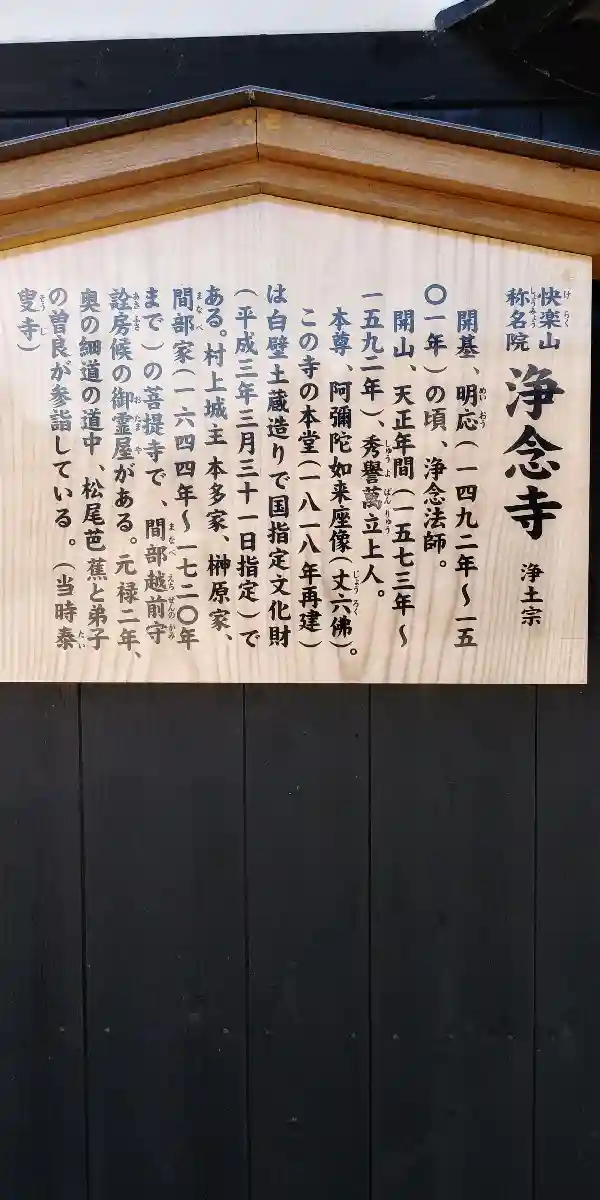 快楽山
称名院
浄念寺 浄土宗
開基、明応(一四九二年~一五
〇一年)の頃、浄念法師。
開山、天正年間(一五七三年~
一五九二年)、秀譽萬立上人。
本尊、阿彌陀如来座像(丈六佛)。
この寺の本堂(一八一八年再建)
は白壁土蔵造りで国指定文化財
(平成三年三月三十一日指定)で
ある。村上城主 本多家、榊原家、
間部家(一六四四年~一七二〇年
まで)の菩提寺で、間部越前守
詮房候の御霊屋がある。元禄二年、
奥の細道の道中、松尾芭蕉と弟子
の曽良が参詣している。(当時泰
叟寺)